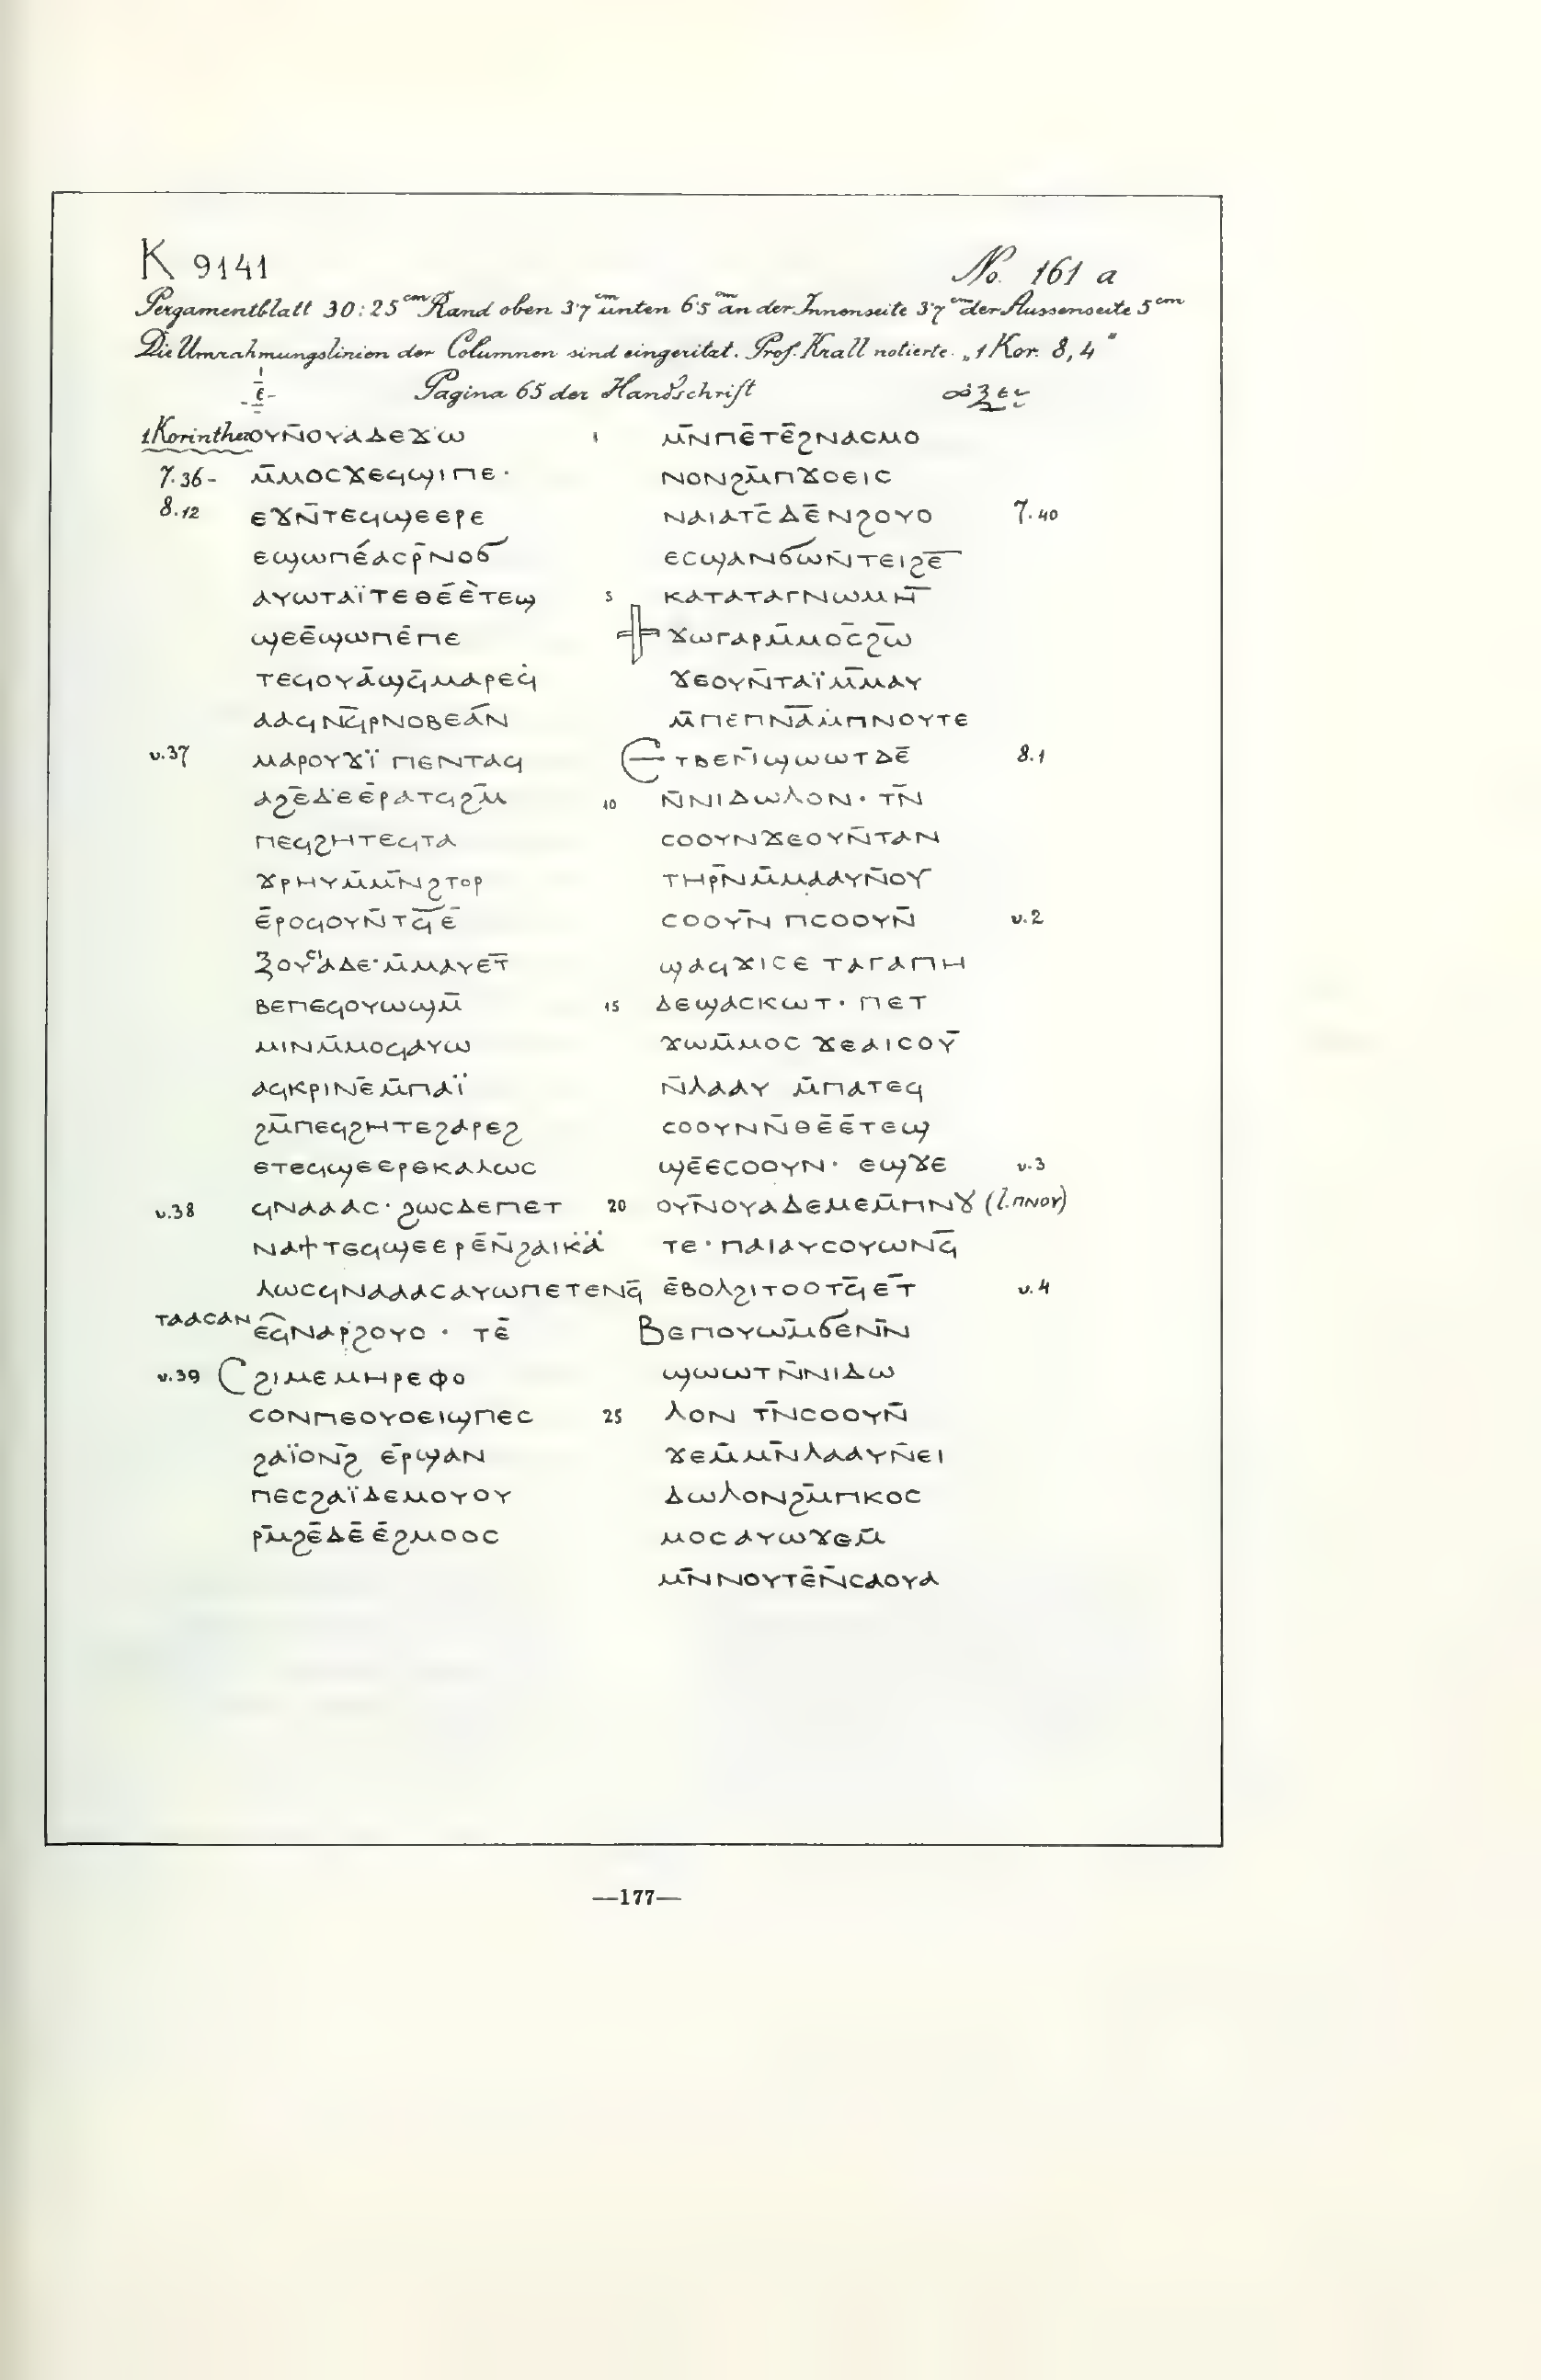 K 9141
No. 161 a
Pergamentblatt 30:25 cm Rand oben 3·7 cm unten 6·5 cm an der Innenseite 3·7 cm der Aussenseite 5 cm
Die Umrahmungslinien der Columnen sind eingeritzt. Prof. Krall notierte „1 Kor. 8,4"
Pagina 65 der Handschrift
1 Korinther ⲟⲩⲛ̄ⲟⲩⲁⲇⲉϫⲱ
7.36- ⲙ̄ⲙⲟⲥϫⲉϥϣⲓⲡⲉ·
8.12 ⲉϫⲛ̄ⲧⲉϥϣⲉⲉⲣⲉ
ⲉϣⲱⲡⲉ́ⲁⲥⲣ̄ⲛⲟϭ
ⲁⲩⲱⲧⲁⲓ̈ⲧⲉⲑⲉ̄ⲉ̀ⲧⲉϣ
ϣⲉⲉ̄ϣⲱⲡⲉ̄ⲡⲉ
ⲧⲉϥⲟⲩⲁ̄ϣϥ̄ⲙⲁⲣⲉϥ̇
ⲁⲁϥⲛϥ̄ⲣⲛⲟⲃⲉⲁ̄ⲛ
v.37 ⲙⲁⲣⲟⲩϫⲓ̈ ⲡⲉⲛⲧⲁϥ
ⲁϩⲉ̄ⲇⲉⲉ̄ⲣⲁⲧϥϩⲙ̄
ⲡⲉϥϩⲏⲧⲉϥⲧⲁ
ϫⲣⲏⲩⲙ̄ⲙⲛ̄ϩⲧⲟⲣ
ⲉ̄ⲣⲟϥⲟⲩⲛ̄ⲧϥ̄ⲉ̄
ⲝⲟⲩⲥⲓⲁⲇⲉ·ⲙ̄ⲙⲁⲩⲉⲧ̄
ⲃⲉⲡⲉϥⲟⲩⲱϣⲙ̄
ⲙⲓⲛⲙ̄ⲙⲟϥⲁⲩⲱ
ⲁϥⲕⲣⲓⲛⲉ̄ⲙ̄ⲡⲁⲓ̈
ϩⲙ̄ⲡⲉϥϩⲏⲧⲉϩⲁⲣⲉϩ
ⲉⲧⲉϥϣⲉⲉⲣⲉⲕⲁⲗⲱⲥ
v.38 ϥⲛⲁⲁⲁⲥ·ϩⲱⲥⲇⲉⲡⲉⲧ
ⲛⲁϯⲧⲉϥϣⲉⲉⲣⲉ̄ⲛ̄ϩⲁⲓⲕ̈ⲁ̈
ⲗⲱⲥϥⲛⲁⲁⲁⲥⲁⲩⲱⲡⲉⲧⲉⲛϥ̄
ⲧⲁⲁⲥⲁⲛ ⲉϥ̄ⲛⲁⲣϩⲟⲩⲟ · ⲧⲉ̄
v.39 Ⲥϩⲓⲙⲉⲙⲏⲣⲉⲫⲟ
ⲥⲟⲛⲡⲉⲟⲩⲟⲉⲓϣⲡⲉⲥ
ϩⲁⲓ̈ⲟⲛϩ̄ ⲉ̄ⲣϣⲁⲛ
ⲡⲉⲥϩⲁⲓ̈ⲇⲉⲙⲟⲩⲟⲩ
ⲣⲙ̄ϩⲉ̄ⲇⲉ̄ⲉ̄ϩⲙⲟⲟⲥ
1 ⲙⲛ̄ⲡⲉ̄ⲧⲉ̄ϩⲛⲁⲥⲙⲟ
ⲛⲟⲛϩⲙ̄ⲡϫⲟⲉⲓⲥ
ⲛⲁⲓⲁⲧⲥ̄ⲇⲉ̄ⲛϩⲟⲩⲟ 7.40
ⲉⲥϣⲁⲛϭⲱⲛ̄ⲧⲉⲓϩⲉ̄
5 ⲕⲁⲧⲁⲧⲁⲅⲛⲱⲙⲏ̄
ϯϫⲱⲅⲁⲣⲙ̄ⲙⲟⲥ̄ϩⲱ̄
ϫⲉⲟⲩⲛ̄ⲧⲁⲓ̈ⲙ̄ⲙⲁⲩ
ⲙ̄ⲡⲉⲡⲛ̄ⲁ̄ⲙ̇ⲡⲛⲟⲩⲧⲉ
Ⲉⲧⲃⲉⲛ̄ⲓϣⲱⲱⲧⲇⲉ̄ 8.1
10 ⲛ̄ⲛⲓⲇⲱⲗⲟⲛ· ⲧⲛ̄
ⲥⲟⲟⲩⲛϫⲉⲟⲩⲛ̄ⲧⲁⲛ
ⲧⲏⲣ̄ⲛⲙ̄ⲙⲁⲁⲩⲛ̄ⲟⲩ
ⲥⲟⲟⲩⲛ̄ ⲡⲥⲟⲟⲩⲛ̄ v.2
ϣⲁϥϫⲓⲥⲉ ⲧⲁⲅⲁⲡⲏ
15 ⲇⲉϣⲁⲥⲕⲱⲧ· ⲡⲉⲧ
ϫⲱⲙ̄ⲙⲟⲥ ϫⲉⲁⲓⲥⲟⲩ̄
ⲛ̄ⲗⲁⲁⲩ ⲙ̄ⲡⲁⲧⲉϥ
ⲥⲟⲟⲩⲛⲛ̄ⲑⲉ̄ⲉ̄ⲧⲉϣ
ϣⲉ̄ⲉⲥⲟⲟⲩⲛ· ⲉϣϫⲉ v.3
20 ⲟⲩⲛ̄ⲟⲩⲁⲇⲉⲙⲉⲙ̄ⲡⲛȣ (l. ⲡⲛⲟⲩ)
ⲧⲉ·ⲡⲁⲓⲁⲩⲥⲟⲩⲱⲛϥ̄
ⲉ̄ⲃⲟⲗϩⲓⲧⲟⲟⲧϥ̄ⲉⲧ̄ v.4
Ⲃⲉⲡⲟⲩⲱⲙ̄ϭⲉⲛ̄ⲛ̄
ϣⲱⲱⲧⲛ̄ⲛⲓⲇⲱ
25 ⲗⲟⲛ ⲧⲛ̄ⲥⲟⲟⲩⲛ̄
ϫⲉⲙ̄ⲙⲛ̄ⲗⲁⲁⲩⲛ̄ⲉⲓ
ⲇⲱⲗⲟⲛϩⲙ̄ⲡⲕⲟⲥ
ⲙⲟⲥⲁⲩⲱϫⲉⲙ̄
ⲙⲛ̄ⲛⲟⲩⲧⲉ̄ⲛ̄ⲥⲁⲟⲩⲁ
—177—